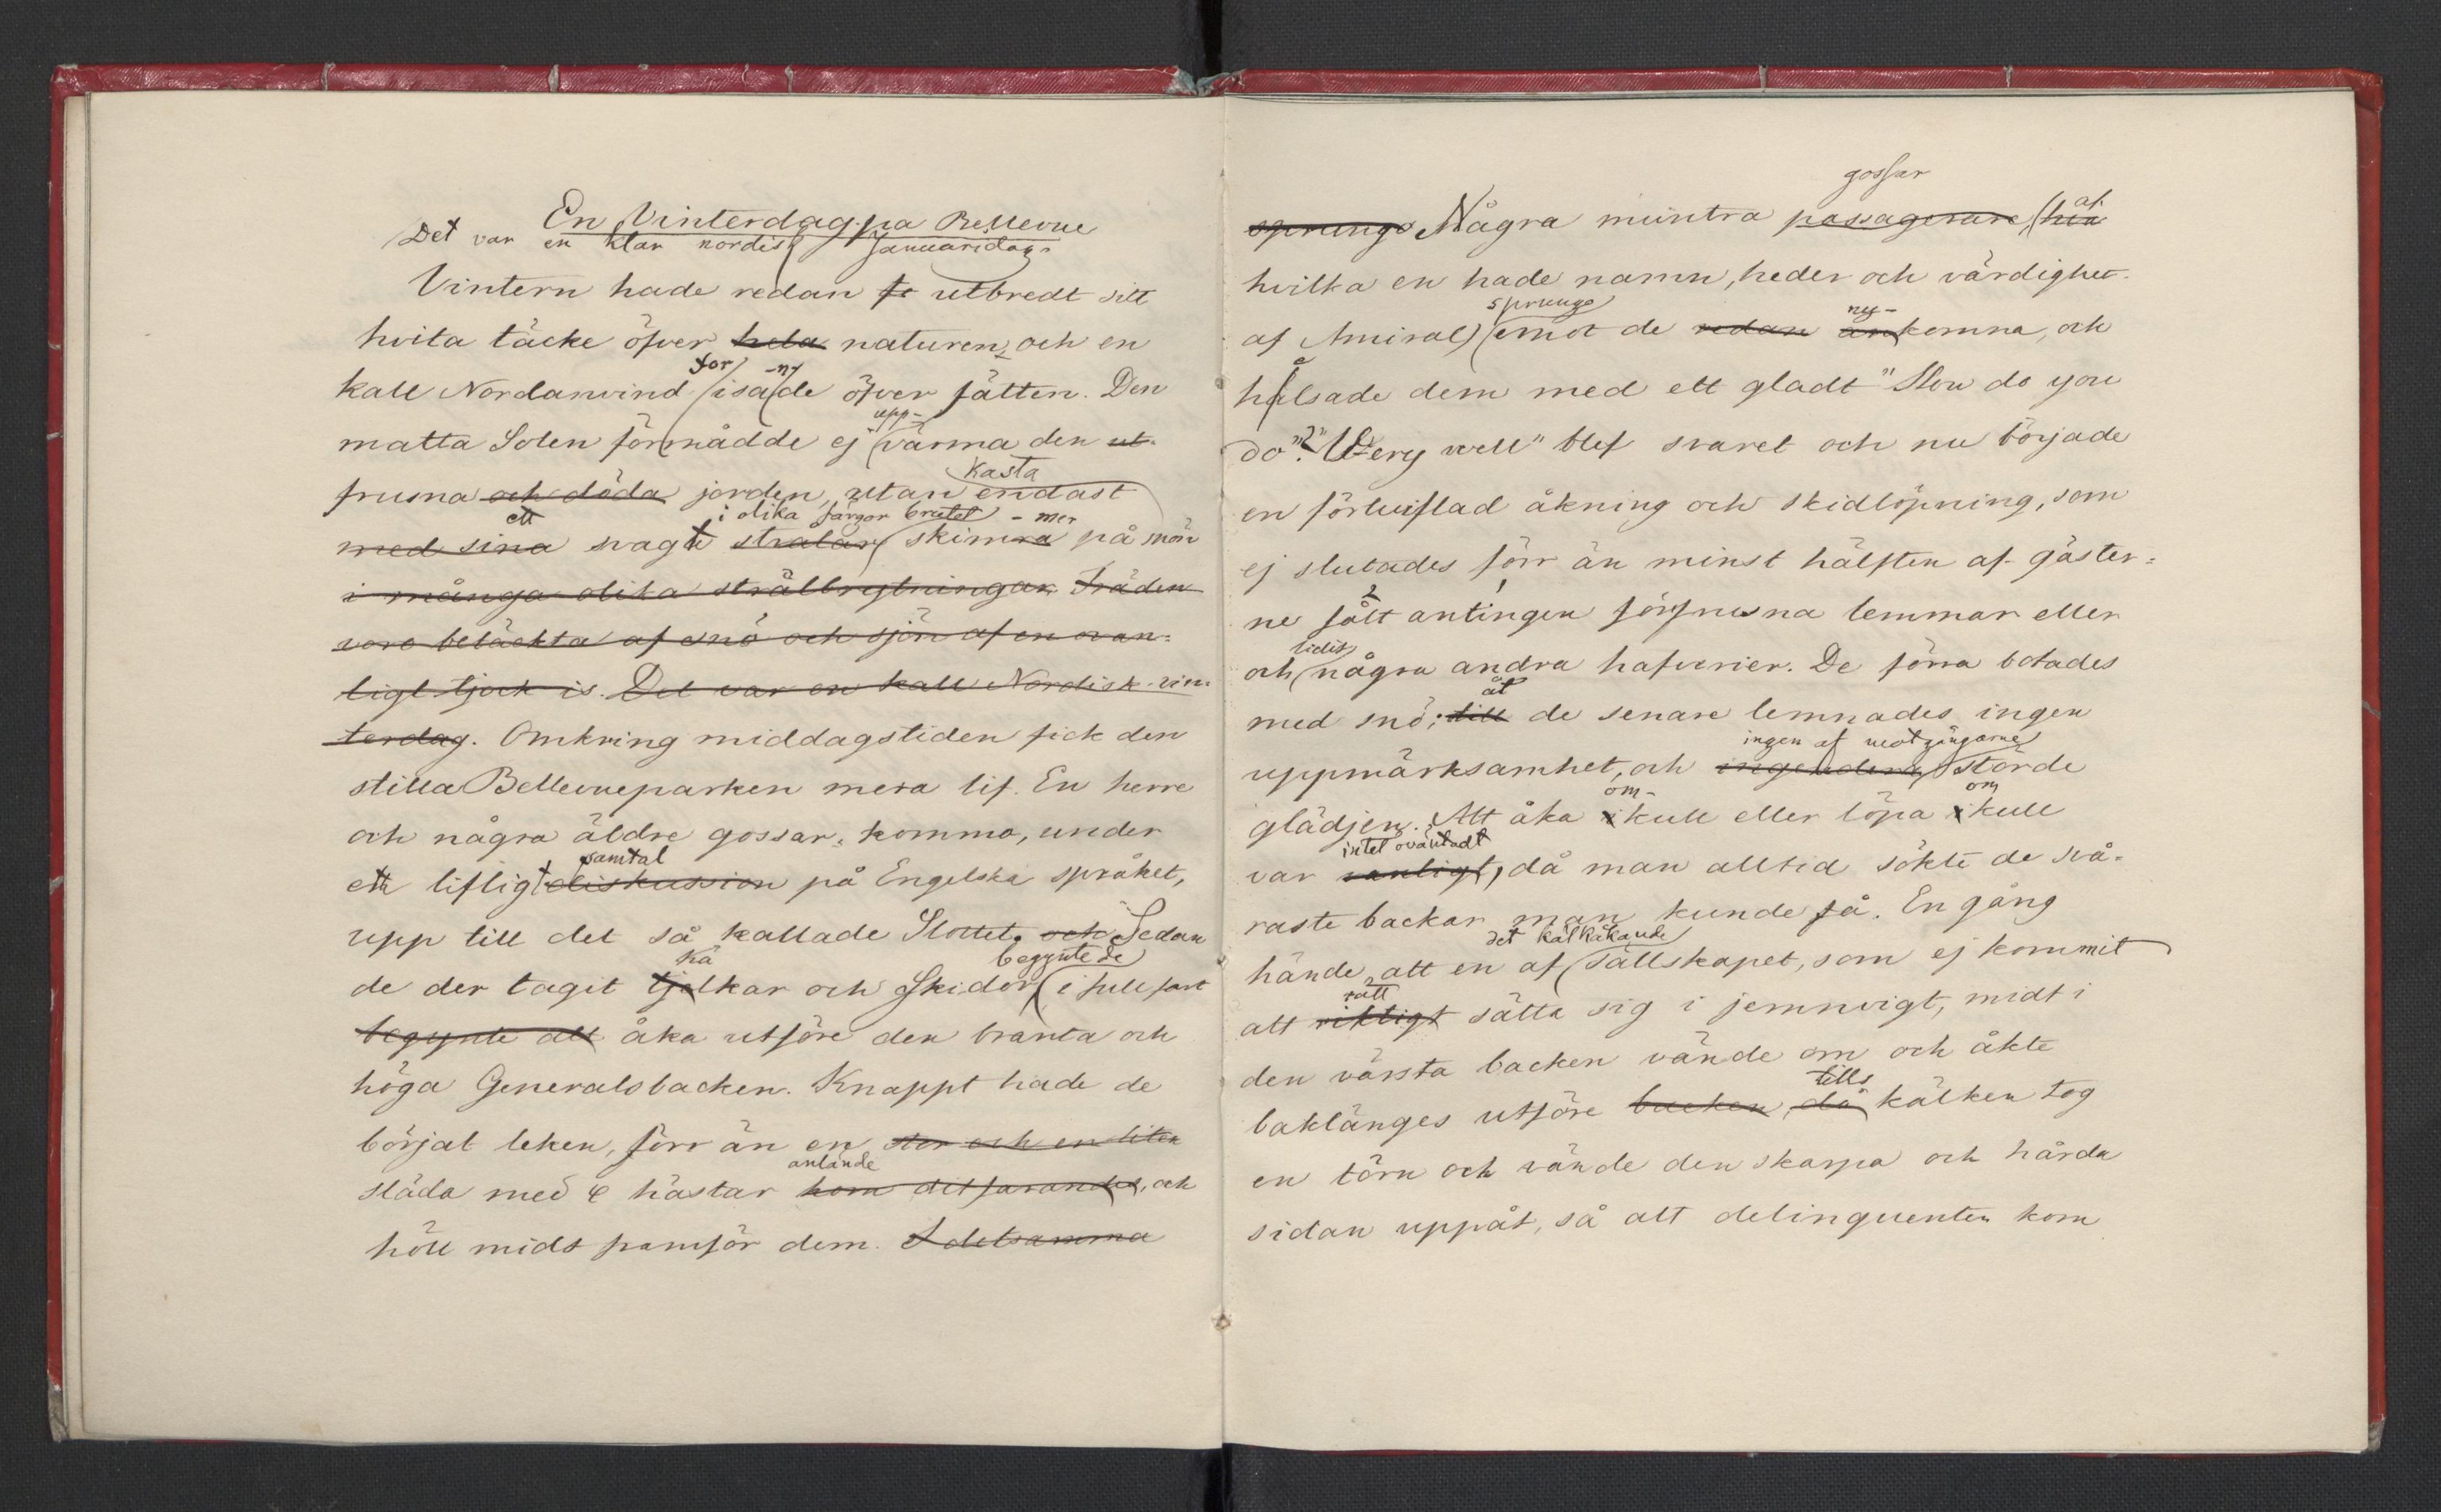 En Vinterdag på Bellevue
Det var en klar nordisk Januaridag.
Vintern hade redan fr utbredt sitt
hvita täcke öfver hela naturen, och en
for -n-
kall Nordanvind isade öfver fälten. Den
upp-
matta Solen förmådde ej värma den ut-
kasta
frusna och döda jorden, utan endast
ett i olika färgor brutet -mer
med sina svagt strålar skimra på snön
i många olika strålbrytningar. Träden
voro betäckta af snö och sjön af en ovan-
ligt tjock is. Det var en kall Nordisk vin-
terdag. Omkring middagstiden fick den
stilla Bellevueparken mera lif. En herre
och några äldre gossar, kommo, under
samtal
ett lifligt diskussion på Engelska språket,
upp till det så kallade Slottet. och Sedan
kä begynte de
de der tagit tjelkar och Skidor, i full fart
begynte att åka utföre den branta och
höga Generalsbacken. Knappt hade de
börjat leken, förr än en stor och en liten
anlände
släda med 4 hästar kom ditfarandes, och
höll midt framför dem. I detsamma
gossar
sprungo Några muntra passagerare, af
hvilka en hade namn, heder och värdighet
sprungo ny-
af Amiral, emot de redan ankomna, och
helsade dem med ett gladt "How do you
do"? "Very well" blef svaret och nu började
en förtviflad åkning och skidlöpning, som
ej slutades förr än minst hälften af gäster-
ne fått antingen förfrusna lemmar eller
lidit
och några andra hafverier. De förra botades
åt
med snö; till de senare lemnades ingen
ingen af motgångarne
uppmärksamhet, och ingendera störde
om- om
glädjen. Att åka ikull eller löpa ikull
intet oväntadt
var vanligt, då man alltid sökte de svå-
raste backar man kunde få. En gång
det kälkåkande
hände, att en af sällskapet, som ej kommit
rätt
att riktigt sätta sig i jemnvigt, midt i
den värsta backen vände om och åkte
tills
baklänges utföre backen, då kälken tog
en törn och vände den skarpa och hårda
sidan uppåt, så att delinquenten kom